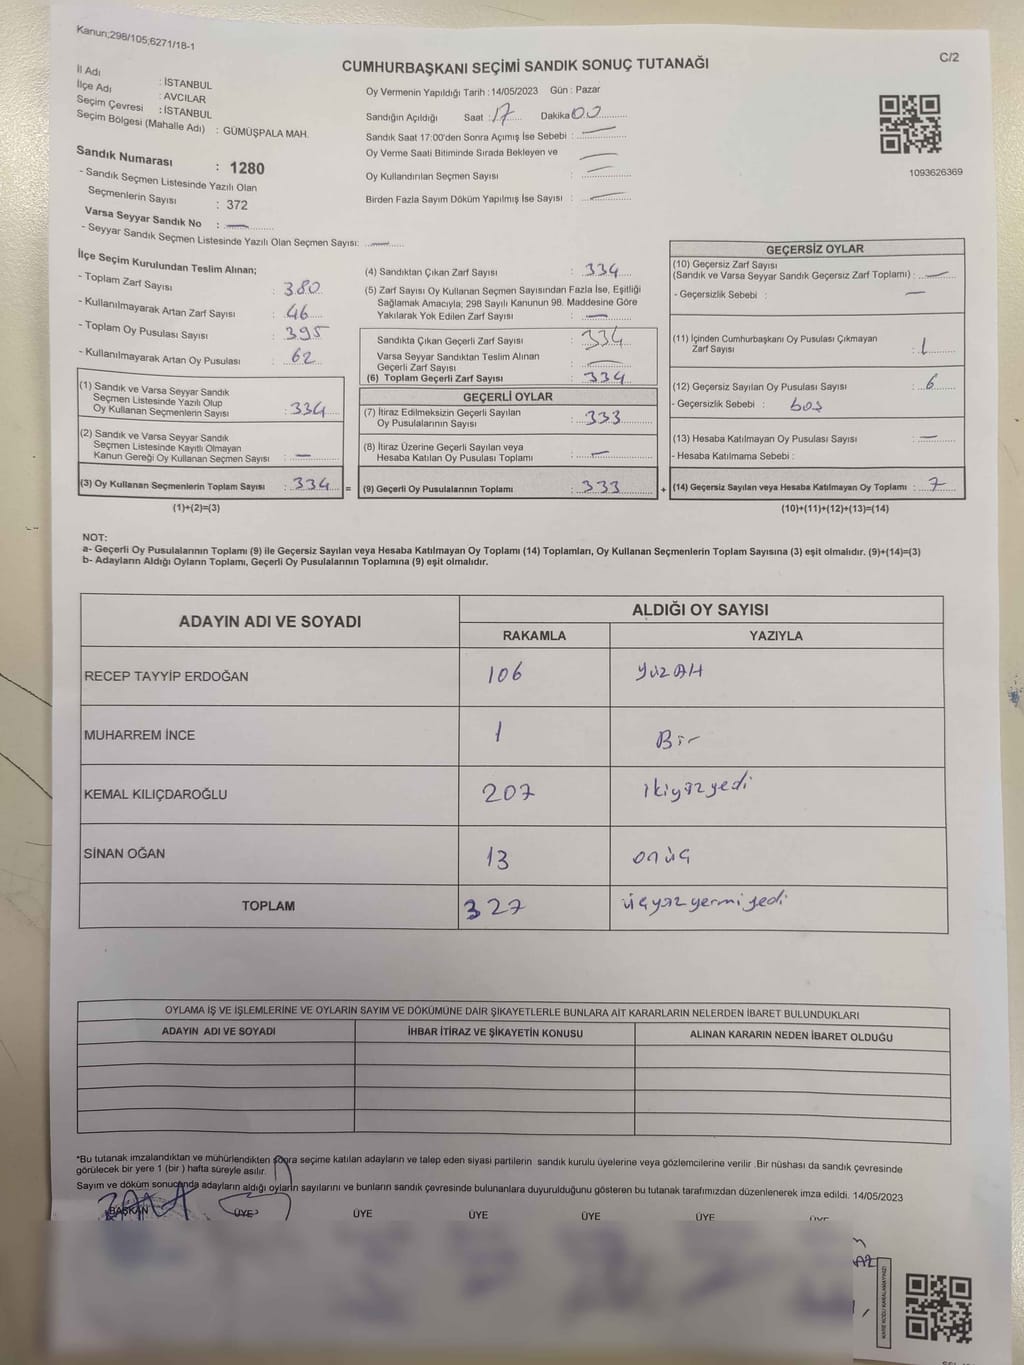 Kanun:298/105;6271/18-1
C/2
CUMHURBAŞKANI SEÇİMİ SANDIK SONUÇ TUTANAĞI
İl Adı : İSTANBUL
İlçe Adı : AVCILAR
Seçim Çevresi : İSTANBUL
Seçim Bölgesi (Mahalle Adı) : GÜMÜŞPALA MAH.
Sandık Numarası : 1280
- Sandık Seçmen Listesinde Yazılı Olan
Seçmenlerin Sayısı : 372
Varsa Seyyar Sandık No : —
- Seyyar Sandık Seçmen Listesinde Yazılı Olan Seçmen Sayısı: —
Oy Vermenin Yapıldığı Tarih : 14/05/2023 Gün : Pazar
Sandığın Açıldığı Saat : 17 Dakika 00
Sandık Saat 17:00'den Sonra Açımış İse Sebebi : —
Oy Verme Saati Bitiminde Sırada Bekleyen ve —
Oy Kullandırılan Seçmen Sayısı : —
Birden Fazla Sayım Döküm Yapılmış İse Sayısı : —
1093626369
İlçe Seçim Kurulundan Teslim Alınan;
- Toplam Zarf Sayısı : 380
- Kullanılmayarak Artan Zarf Sayısı : 46
- Toplam Oy Pusulası Sayısı : 395
- Kullanılmayarak Artan Oy Pusulası : 62
(1) Sandık ve Varsa Seyyar Sandık
Seçmen Listesinde Yazılı Olup
Oy Kullanan Seçmenlerin Sayısı : 334
(2) Sandık ve Varsa Seyyar Sandık
Seçmen Listesinde Kayıtlı Olmayan
Kanun Gereği Oy Kullanan Seçmen Sayısı : —
(3) Oy Kullanan Seçmenlerin Toplam Sayısı : 334 =
(1)+(2)=(3)
(4) Sandıktan Çıkan Zarf Sayısı : 334
(5) Zarf Sayısı Oy Kullanan Seçmen Sayısından Fazla İse, Eşitliği
Sağlamak Amacıyla; 298 Sayılı Kanunun 98. Maddesine Göre
Yakılarak Yok Edilen Zarf Sayısı : —
Sandıkta Çıkan Geçerli Zarf Sayısı : 334
Varsa Seyyar Sandıktan Teslim Alınan
Geçerli Zarf Sayısı : —
(6) Toplam Geçerli Zarf Sayısı : 334
GEÇERLİ OYLAR
(7) İtiraz Edilmeksizin Geçerli Sayılan
Oy Pusulalarının Sayısı : 333
(8) İtiraz Üzerine Geçerli Sayılan veya
Hesaba Katılan Oy Pusulası Toplamı : —
(9) Geçerli Oy Pusulalarının Toplamı : 333 +
GEÇERSİZ OYLAR
(10) Geçersiz Zarf Sayısı
(Sandık ve Varsa Seyyar Sandık Geçersiz Zarf Toplamı) : —
- Geçersizlik Sebebi : —
(11) İçinden Cumhurbaşkanı Oy Pusulası Çıkmayan
Zarf Sayısı : 1
(12) Geçersiz Sayılan Oy Pusulası Sayısı : 6
- Geçersizlik Sebebi : boş
(13) Hesaba Katılmayan Oy Pusulası Sayısı : —
- Hesaba Katılmama Sebebi :
(14) Geçersiz Sayılan veya Hesaba Katılmayan Oy Toplamı : 7
(10)+(11)+(12)+(13)=(14)
NOT:
a- Geçerli Oy Pusulalarının Toplamı (9) ile Geçersiz Sayılan veya Hesaba Katılmayan Oy Toplamı (14) Toplamları, Oy Kullanan Seçmenlerin Toplam Sayısına (3) eşit olmalıdır. (9)+(14)=(3)
b- Adayların Aldığı Oyların Toplamı, Geçerli Oy Pusulalarının Toplamına (9) eşit olmalıdır.
ADAYIN ADI VE SOYADI ALDIĞI OY SAYISI
RAKAMLA YAZIYLA
RECEP TAYYİP ERDOĞAN 106 yüzaltı
MUHARREM İNCE 1 Bir
KEMAL KILIÇDAROĞLU 207 ikiyüzyedi
SİNAN OĞAN 13 onüç
TOPLAM 327 üçyüzyermiyedi
OYLAMA İŞ VE İŞLEMLERİNE VE OYLARIN SAYIM VE DÖKÜMÜNE DAİR ŞİKAYETLERLE BUNLARA AİT KARARLARIN NELERDEN İBARET BULUNDUKLARI
ADAYIN ADI VE SOYADI İHBAR İTİRAZ VE ŞİKAYETİN KONUSU ALINAN KARARIN NEDEN İBARET OLDUĞU
*Bu tutanak imzalandıktan ve mühürlendikten sonra seçime katılan adayların ve talep eden siyasi partilerin sandık kurulu üyelerine veya gözlemcilerine verilir .Bir nüshası da sandık çevresinde
görülecek bir yere 1 (bir ) hafta süreyle asılır.
Sayım ve döküm sonucunda adayların aldığı oyların sayılarını ve bunların sandık çevresinde bulunanlara duyurulduğunu gösteren bu tutanak tarafımızdan düzenlenerek imza edildi. 14/05/2023
BAŞKAN ÜYE ÜYE ÜYE ÜYE ÜYE ÜYE